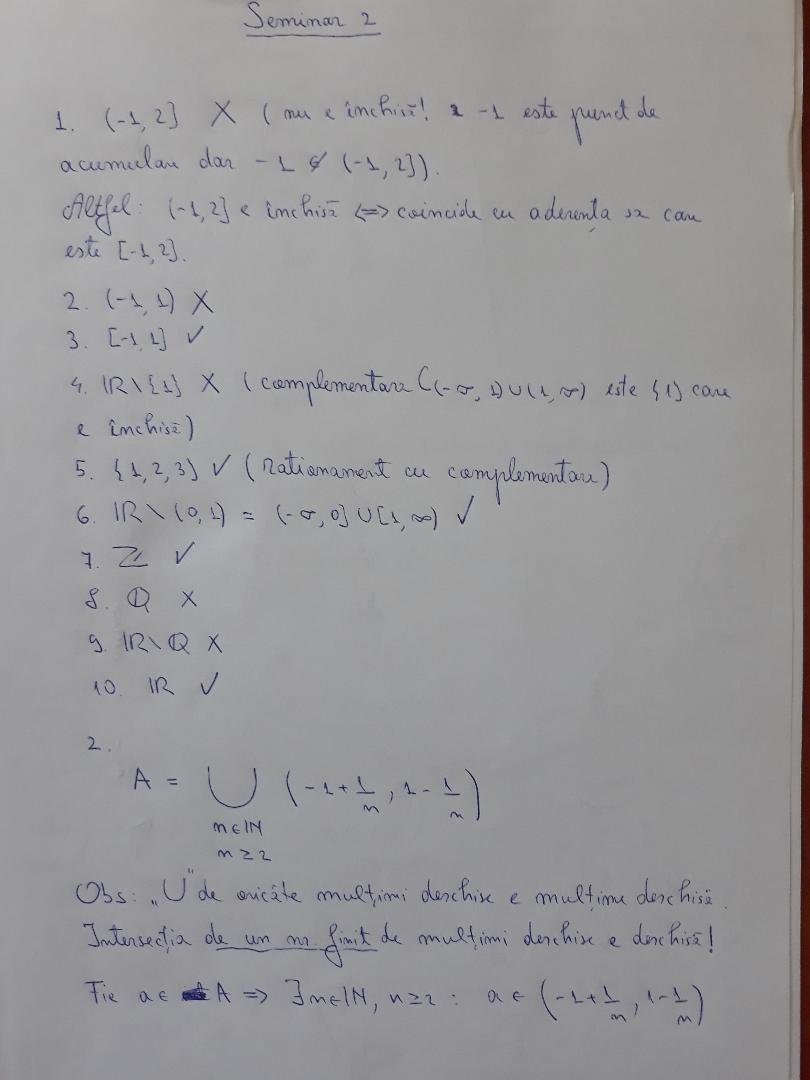 Seminar 2
1. (-1, 2] X ( nu e închisă! -1 este punct de
acumulare dar -1 ∉ (-1, 2]).
Altfel: (-1, 2] e închisă <=> coincide cu aderența sa care
este [-1, 2].
2. (-1, 1) X
3. [-1, 1] ✓
4. IR \ {1} X ( complementara C(-∞, 1) ∪ (1, ∞) este {1} care
e închisă)
5. {1, 2, 3} ✓ ( Raționament cu complementare)
6. IR \ (0, 1) = (-∞, 0] ∪ [1, ∞) ✓
7. ℤ ✓
8. ℚ X
9. IR \ ℚ X
10. IR ✓
2.
A = ⋃ (-1 + 1/n , 1 - 1/n)
n ∈ IN
n ≥ 2
Obs: „∪" de oricâte mulțimi deschise e mulțime deschisă.
Intersecția de un nr. finit de mulțimi deschise e deschisă!
Fie a ∈ A => ∃ n ∈ IN, n ≥ 2 : a ∈ (-1 + 1/n , 1 - 1/n)